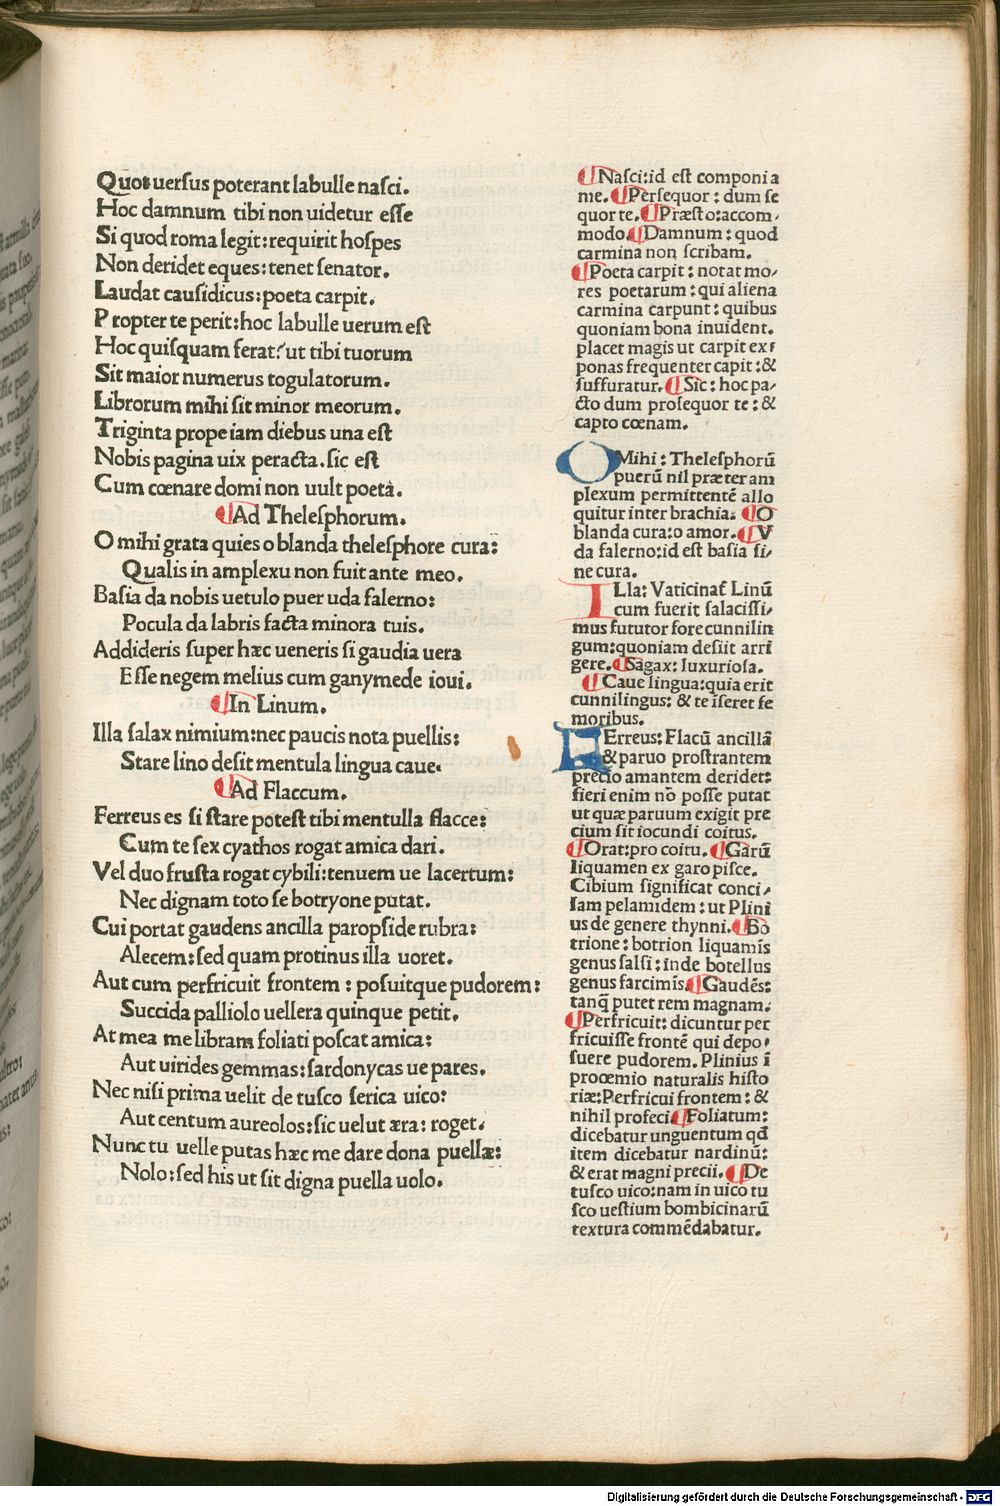 Quot uersus poterant labulle nasci.
Hoc damnum tibi non uidetur esse
Si quod roma legit: requirit hospes
Non deridet eques: tenet senator.
Laudat causidicus: poeta carpit.
Propter te perit: hoc labulle uerum est
Hoc quisquam ferat? ut tibi tuorum
Sit maior numerus togulatorum.
Librorum mihi sit minor meorum.
Triginta prope iam diebus una est
Nobis pagina uix peracta. sic est
Cum cœnare domi non uult poeta.
¶Ad Thelesphorum.
O mihi grata quies o blanda thelesphore cura:
Qualis in amplexu non fuit ante meo.
Basia da nobis uetulo puer uda falerno:
Pocula da labris facta minora tuis.
Addideris super hæc ueneris si gaudia uera
Esse negem melius cum ganymede ioui.
¶In Linum.
Illa salax nimium: nec paucis nota puellis:
Stare lino desit mentula lingua caue.
¶Ad Flaccum.
Ferreus es si stare potest tibi mentulla flacce:
Cum te sex cyathos rogat amica dari.
Vel duo frusta rogat cybili: tenuem ue lacertum:
Nec dignam toto se botryone putat.
Cui portat gaudens ancilla paropside rubra:
Alecem: sed quam protinus illa uoret.
Aut cum perfricuit frontem: posuitque pudorem:
Succida palliolo uellera quinque petit.
At mea me libram foliati poscat amica:
Aut uirides gemmas: sardonycas ue pares.
Nec nisi prima uelit de tusco serica uico:
Aut centum aureolos: sic uelut æra: roget.
Nunc tu uelle putas hæc me dare dona puellæ:
Nolo: sed his ut sit digna puella uolo.
¶Nasci: id est componi a
me. ¶Persequor: dum se
quor te. ¶Præsto: accom-
modo. ¶Damnum: quod
carmina non scribam.
¶Poeta carpit: notat mo-
res poetarum: qui aliena
carmina carpunt: quibus
quoniam bona inuident.
placet magis ut carpit ex:
ponas frequenter capit: &
suffuratur. ¶Sic: hoc pa-
cto dum prosequor te: &
capto cœnam.
O Mihi: Thelesphorū
puerū nil præter am
plexum permittentē allo
quitur inter brachia. ¶O
blanda cura: o amor. ¶V
da falerno: id est basia si-
ne cura.
ILla: Vaticinat̄ Linū
cum fuerit salacissi-
mus fututor fore cunnilin
gum: quoniam desiit arri
gere. ¶Sagax: luxuriosa.
¶Caue lingua: quia erit
cunnilingus: & te iseret fe
moribus.
FErreus: Flacū ancillā
& paruo prostrantem
precio amantem deridet:
fieri enim nō posse putat
ut quæ paruum exigit pre
cium sit iocundi coitus.
¶Orat: pro coitu. ¶Garū
liquamen ex garo pisce.
Cibium significat conci-
sam pelamidem: ut Plini
us de genere thynni. ¶Bo
trione: botrion liquamīs
genus salsi: inde botellus
genus farcimīs. ¶Gaudēs:
tanq̄ putet rem magnam.
¶Perfricuit: dicuntur per
fricuisse frontē qui depo-
suere pudorem. Plinius ī
proœmio naturalis histo
riæ: Perfricui frontem: &
nihil profeci. ¶Foliatum:
dicebatur unguentum qd̄
item dicebatur nardinū:
& erat magni precii. ¶De
tusco uico: nam in uico tu
sco uestium bombicinarū
textura commēdabatur.
Digitalisierung gefördert durch die Deutsche Forschungsgemeinschaft - DFG